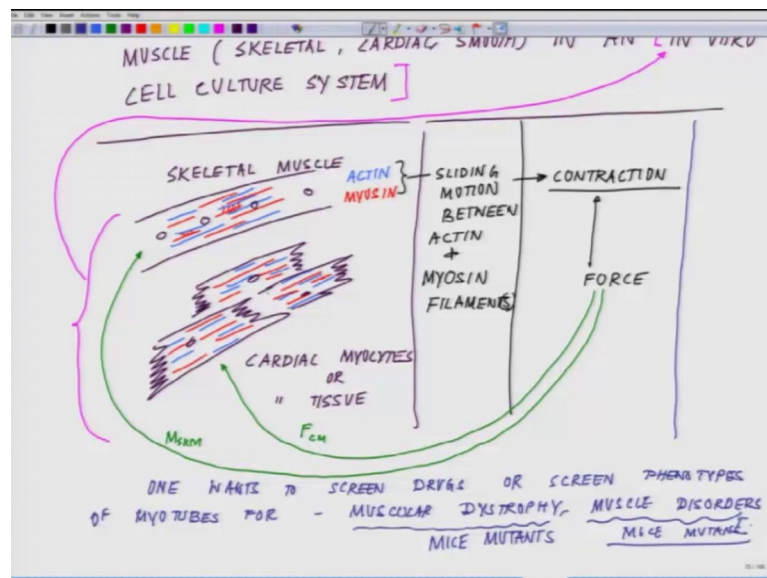 MUSCLE ( SKELETAL, CARDIAC SMOOTH) IN AN IN VITRO
CELL CULTURE SYSTEM
SKELETAL MUSCLE
ACTIN
MYOSIN
SLIDING
MOTION
BETWEEN
ACTIN
+
MYOSIN
FILAMENT(S)
CONTRACTION
FORCE
CARDIAC MYOCYTES
OR
" TISSUE
FCM
MSKM
ONE WANTS TO SCREEN DRUGS OR SCREEN PHENOTYPES
OF MYOTUBES FOR - MUSCULAR DYSTROPHY, MUSCLE DISORDERS
MICE MUTANTS MICE MUTANT